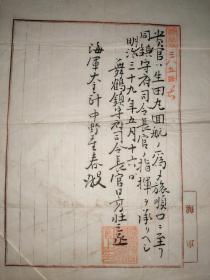 貴官ハ生田丸回航ノ為メ旅順口ニ至リ
同鎮守府司令長官ノ指揮ヲ承クヘシ
明治三十九年五月十六日
舞鶴鎮守府司令長官日高壮之丞
海軍大主計中野重春殿
海軍